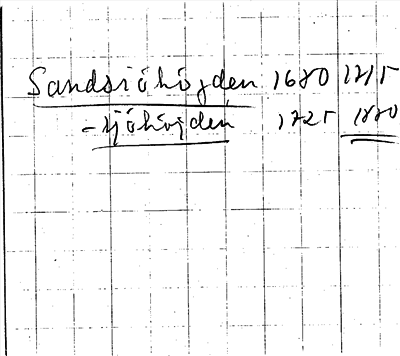 Sandsiöhögden 1680 1715
- sjöhögden 1725 1880